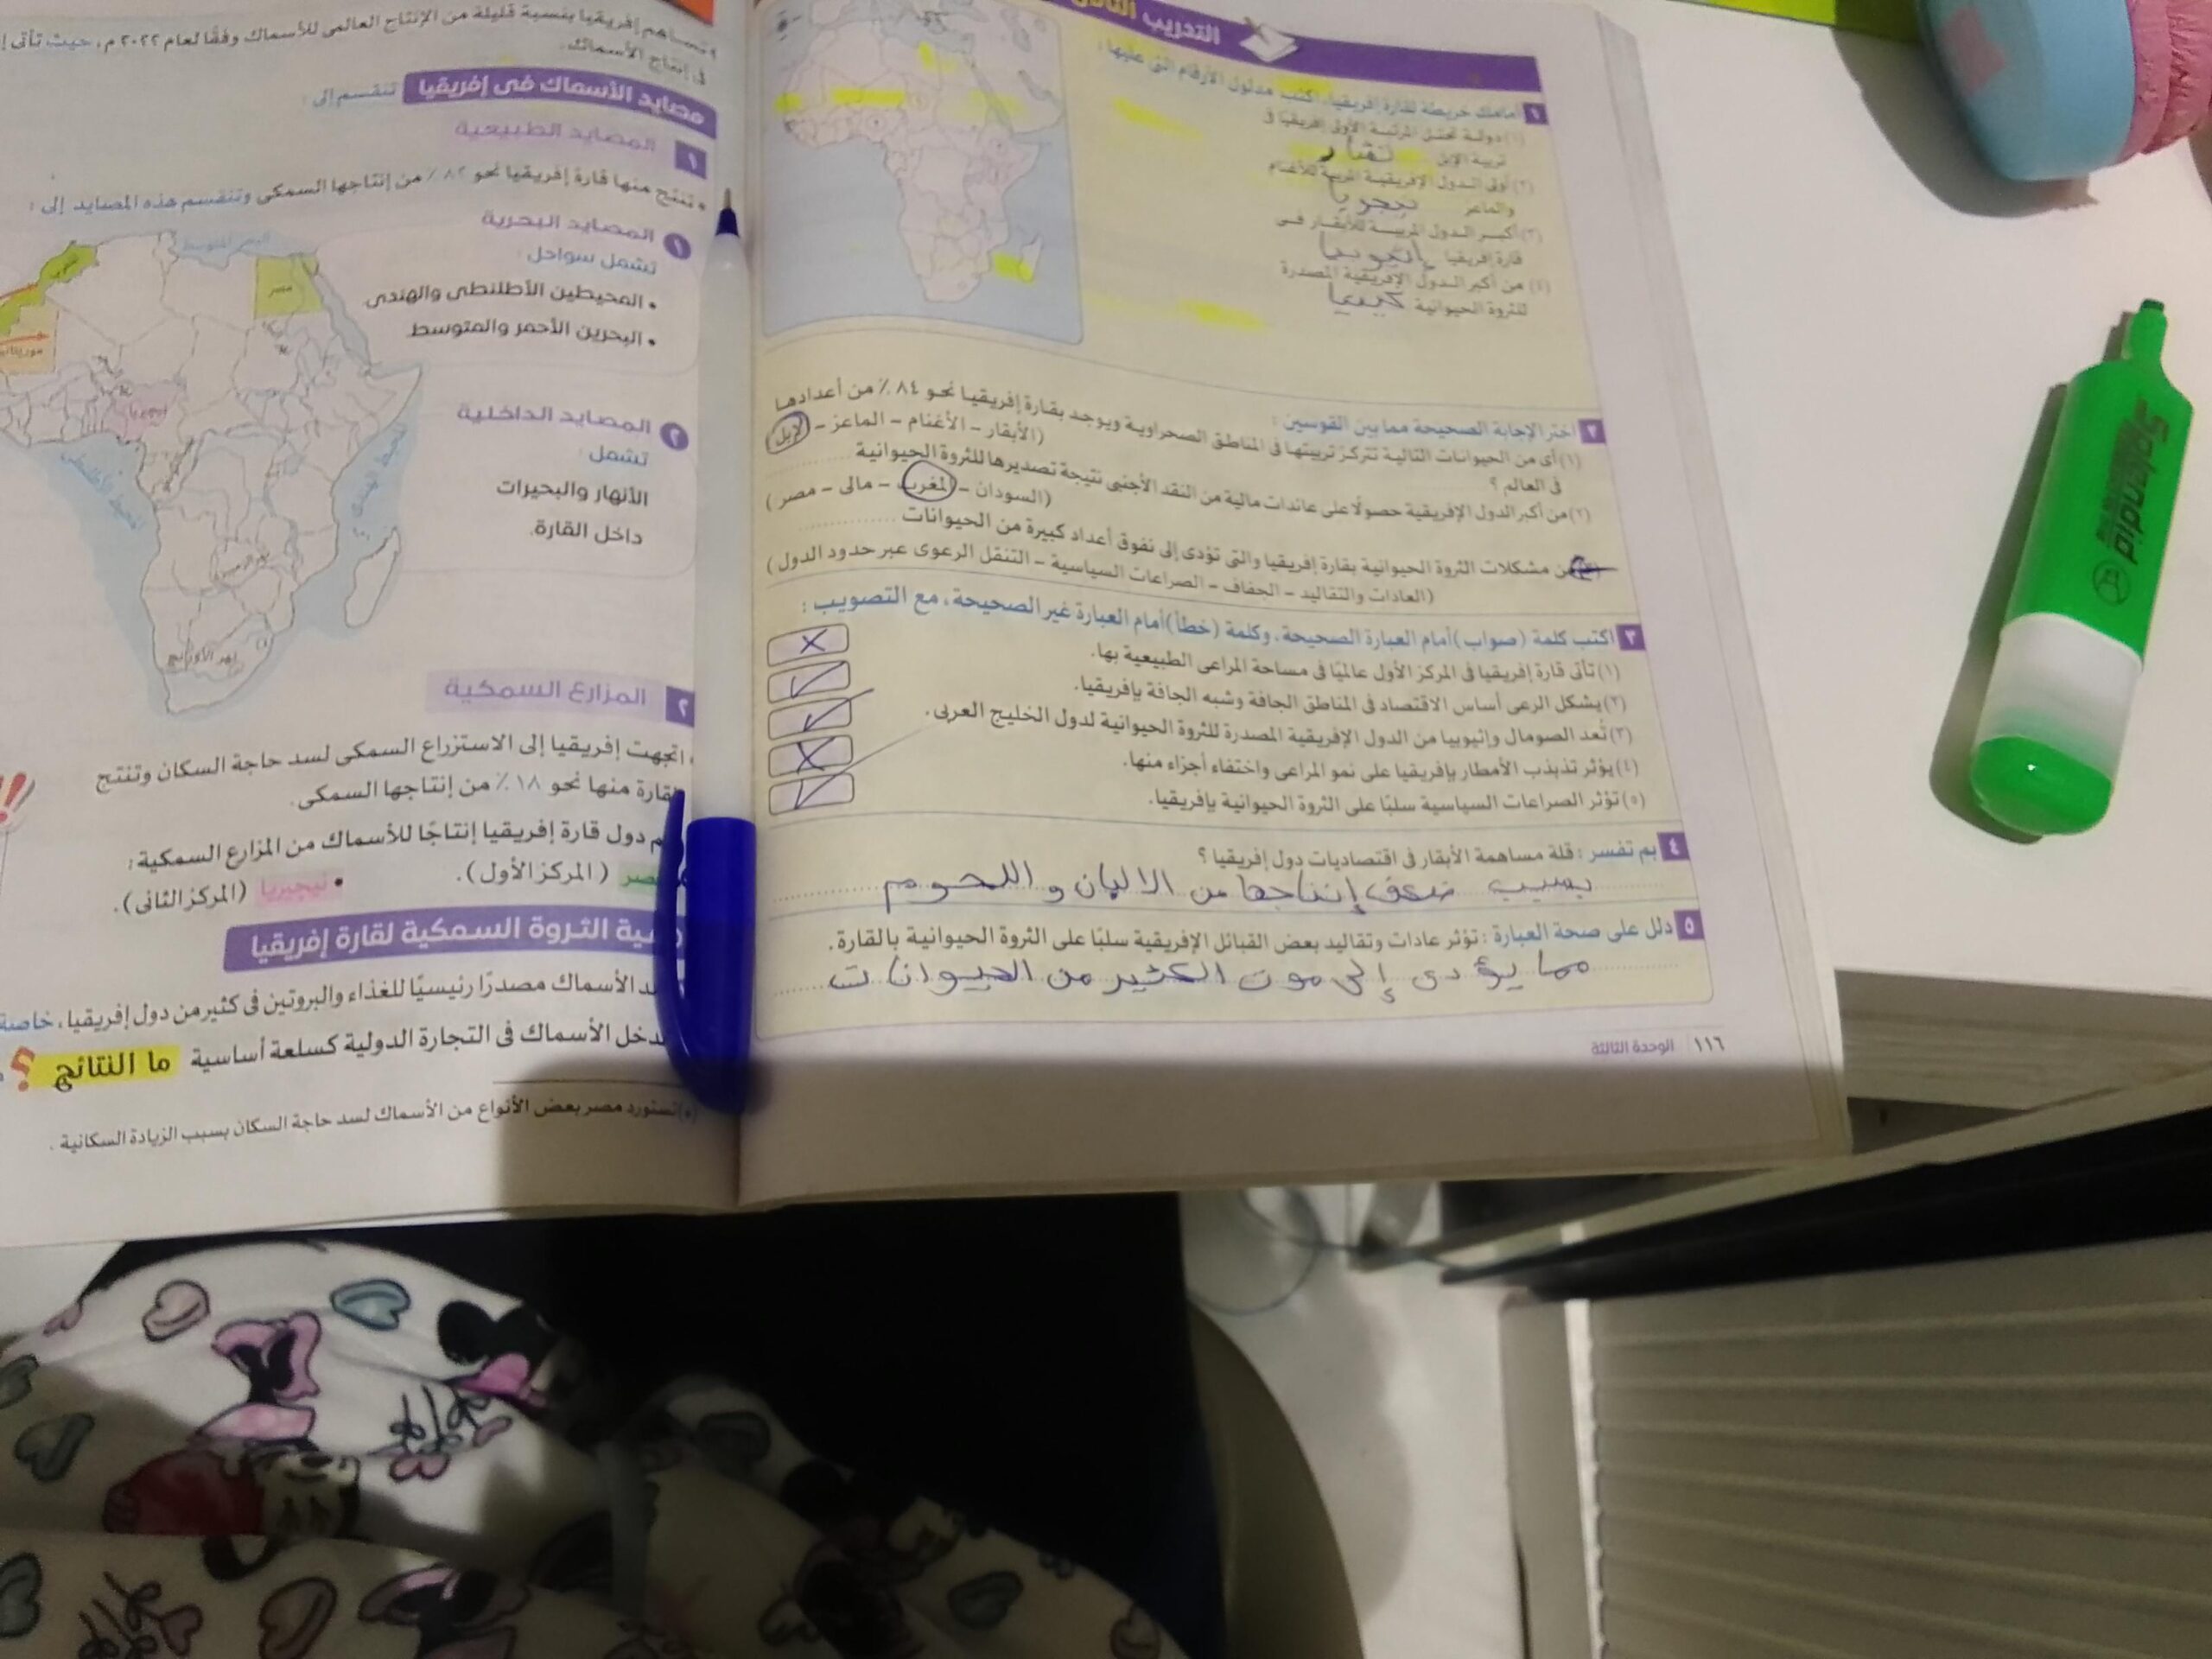 التدريب
١ أمامك خريطة لقارة إفريقيا، اكتب مدلول الأرقام التى عليها :
(١) دولة تحتل المرتبة الأولى إفريقيا فى
تربية الإبل تشاد
(٢) أولى الدول الإفريقية المربية للأغنام
والماعز نيجريا
(٣) أكبر الدول المربية للأبقار فى
قارة إفريقيا إثيوبيا
(٤) من أكبر الدول الإفريقية المصدرة
للثروة الحيوانية
٢ اختر الإجابة الصحيحة مما بين القوسين :
(١) أى من الحيوانات التالية تتركز تربيتها فى المناطق الصحراوية ويوجد بقارة إفريقيا نحو ٨٤ ٪ من أعدادها
فى العالم ؟
(الأبقار – الأغنام – الماعز – الإبل)
(٢) من أكبر الدول الإفريقية حصولًا على عائدات مالية من النقد الأجنبى نتيجة تصديرها للثروة الحيوانية
(السودان – المغرب – مالى – مصر)
من مشكلات الثروة الحيوانية بقارة إفريقيا والتى تؤدى إلى نفوق أعداد كبيرة من الحيوانات
(العادات والتقاليد – الجفاف – الصراعات السياسية – التنقل الرعوى عبر حدود الدول)
٣ اكتب كلمة (صواب) أمام العبارة الصحيحة، وكلمة (خطأ) أمام العبارة غير الصحيحة، مع التصويب :
(١) تأتى قارة إفريقيا فى المركز الأول عالميًا فى مساحة المراعى الطبيعية بها. ×
(٢) يشكل الرعى أساس الاقتصاد فى المناطق الجافة وشبه الجافة بإفريقيا. ✓
(٣) تُعد الصومال وإثيوبيا من الدول الإفريقية المصدرة للثروة الحيوانية لدول الخليج العربى. ✓
(٤) يؤثر تذبذب الأمطار بإفريقيا على نمو المراعى واختفاء أجزاء منها. ×
(٥) تؤثر الصراعات السياسية سلبًا على الثروة الحيوانية بإفريقيا. ✓
٤ بم تفسر : قلة مساهمة الأبقار فى اقتصاديات دول إفريقيا ؟
بسبب ضعف إنتاجها من الالبان و اللحوم
٥ دلل على صحة العبارة : تؤثر عادات وتقاليد بعض القبائل الإفريقية سلبًا على الثروة الحيوانية بالقارة.
مما يؤدى إلى موت الكثير من الحيوانات
١١٦ الوحدة الثالثة
تساهم إفريقيا بنسبة قليلة من الإنتاج العالمى للأسماك وفقًا لعام ٢٠٢٢ م، حيث تأتى
فى إنتاج الأسماك.
مصايد الأسماك فى إفريقيا تنقسم إلى :
١ المصايد الطبيعية
• تنتج منها قارة إفريقيا نحو ٨٢ ٪ من إنتاجها السمكى وتنقسم هذه المصايد إلى :
١ المصايد البحرية
تشمل سواحل :
• المحيطين الأطلنطى والهندى.
• البحرين الأحمر والمتوسط
٢ المصايد الداخلية
تشمل :
الأنهار والبحيرات
داخل القارة.
البحر المتوسط
المغرب
مصر
نيجيريا
المحيط الأطلنطى
المحيط الهندى
نهر الأورانج
٢ المزارع السمكية
اتجهت إفريقيا إلى الاستزراع السمكى لسد حاجة السكان وتنتج
القارة منها نحو ١٨ ٪ من إنتاجها السمكى.
دول قارة إفريقيا إنتاجًا للأسماك من المزارع السمكية :
مصر (المركز الأول).
• نيجيريا (المركز الثانى).
الثروة السمكية لقارة إفريقيا
الأسماك مصدرًا رئيسيًا للغذاء والبروتين فى كثير من دول إفريقيا، خاصة
الأسماك فى التجارة الدولية كسلعة أساسية ما النتائج ؟
تستورد مصر بعض الأنواع من الأسماك لسد حاجة السكان بسبب الزيادة السكانية .
Splendid